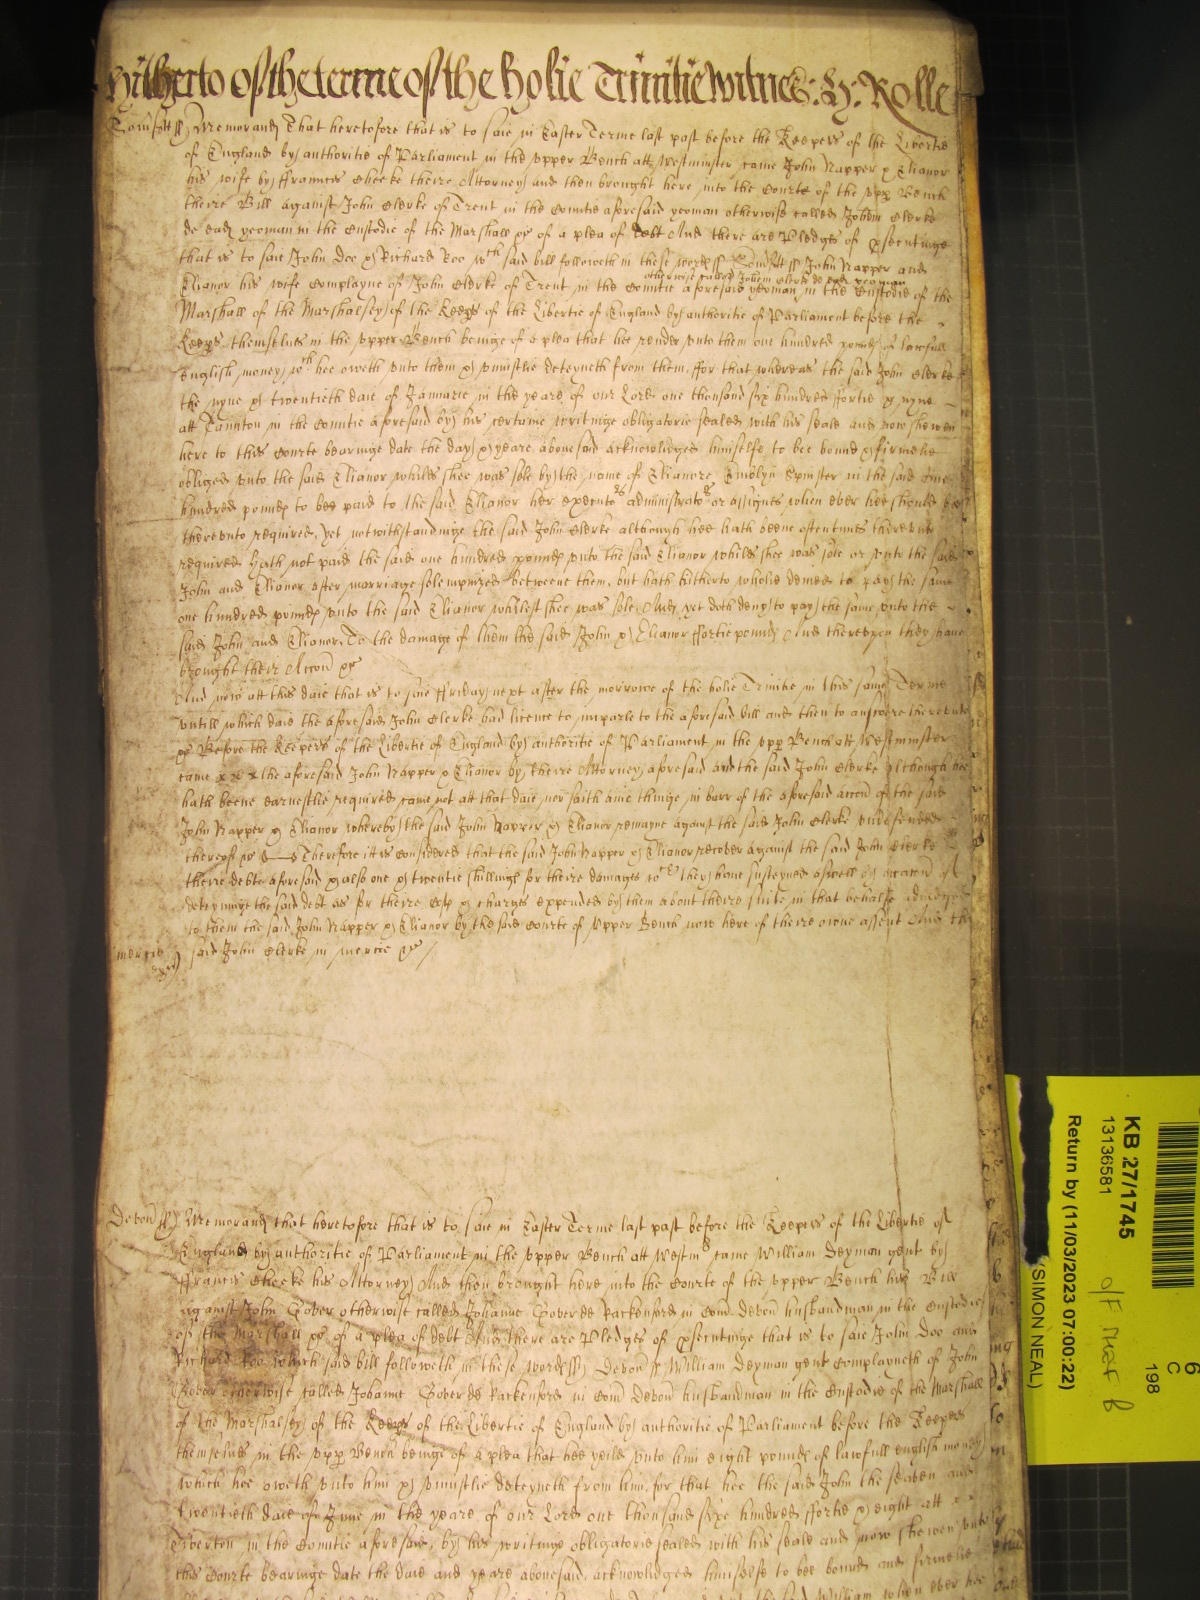 Hitherto of the terme of the holie Trinitie witnes: H: Rolle
Somsett ss Memorand That heretofore that is to saie in Easter Terme last past before the Keepers of the Libertie
of England by authoritie of Parliament in the upper Bench att Westminster came John Napper & Elianor
his wife by ffrancis Cheeke theire Attorney and then brought here into the Courte of the upp Bench
theire Bill against John Clerke of Trent in the Countie aforesaid yeoman otherwise called Johem Clerke
de ead yeoman in the Custodie of the Marshall &c of a plea of debt And there are Pledges of psecutinge
that is to saie John Doe & Richard Roe wch said bill followeth in these words ss Somsett ss John Napper and
otherwise called Johem Clerke de ead yeoman
Elianor his wife Complayne of John Clerke of Trent in the Countie aforesaid yeoman in the Custodie of the
Marshall of the Marshalsey of the Keeps of the Libertie of England by authoritie of Parliament before the
Keeps themselves in the upper Bench beinge of a plea that hee render unto them one hundred pounds of lawfull
English money wch hee oweth unto them & uniustlie deteyneth from them, ffor that whereas the said John Clerke
the nyne & twentieth daie of Januarie in the yeare of our Lord one thousand six hundred ffortie & nyne
att Taunton in the Countie aforesaid by his certaine writinge obligatorie sealed with his seale and now shewen
here to this Courte bearinge date the day & yeare abovesaid acknowledged himselfe to bee bound & firmelie
obliged unto the said Elianor whiles shee was sole by the name of Elianore Spinster in the said one
hundred pounds to bee paid to the said Elianor her executors administrators or assignes when ever hee should bee
thereunto required, yet notwithstandinge the said John Clerke although hee hath beene oftentimes thereunto
required Hath not paid the said one hundred pounds unto the said Elianor whiles shee was sole or unto the said
John and Elianor after marriage solempnized betweene them, but hath hitherto wholie denied to pay the same
one hundred pounds unto the said Elianor whilest shee was sole, And yet doth deny to pay the same unto the
said John and Elianor, To the damage of them the said John & Elianor ffortie pounds And thereupon they have
brought their Accon &c
And now att this daie that is to saie ffriday next after the morrowe of the holie Trinitie in this same Terme
untill which daie the aforesaid John Clerke had licence to imparle to the aforesaid bill and then to answere thereunto
&c Before the Keepers of the Libertie of England by authoritie of Parliament in the upp Bench att Westminster
came the aforesaid John Napper & Elianor by theire Attorney aforesaid and the said John Clerke although hee
hath beene earnestlie required came not att that daie nor saith anie thinge in barr of the aforesaid accon of the said
John Napper & Elianor whereby the said John Napper & Elianor remayne against the said John Clerke undefended
thereof &c Therefore itt is Considered that the said John Napper & Elianor recover against the said John Clerke
theire debte aforesaid & also one & twentie shillings for theire damages wch they have susteyned aswell by occasion of
deteyninge the said debt as for theire Costs & charges expended by them about theire suite in that behalfe adiudged
to them the said John Napper & Elianor by the said Courte of Upper Bench now here of theire owne assent And the
mercie said John Clerke in mercie &c
Devon ss Memorand that heretofore that is to saie in Easter Terme last past before the Keepers of the Libertie of
England by authoritie of Parliament in the upper Bench att Westmr came William Deyman gent by
ffrancis Cheeke his Attorney And then brought here into the Courte of the upper Bench his Bill
against John Gover otherwise called Johanne Gover de Rackenford in Com Devon husbandman in the Custodie
of the Marshall &c of a plea of debt And there are Pledges of psecutinge that is to saie John Doo and
Richard Roo which said bill followeth in these words ss Devon ss William Deyman gent Complayneth of John
Gover otherwise called Johanne Gover de Rackenford in Com Devon husbandman in the Custodie of the Marshall
of the Marshalsey of the Keeps of the Libertie of England by authoritie of Parliament before the Keepers
themselves in the upp Bench beinge of a plea that hee yeild unto him eight pounds of lawfull english money
which hee oweth unto him & uniustlie deteyneth from him, for that hee the said John the seaven and
twentieth daie of June in the yeare of our Lord one thousand sixe hundred ffortie & eight att
Tiverton in the Countie aforesaid, by his writinge obligatorie sealed with his seale and now shewen unto
this Courte bearinge date the daie and yeare abovesaid, acknowledged himselfe to bee bound and firmelie
William when ever hee
KB 27/1745
13136581
Return by (11/03/2023 07:00:22)
(SIMON NEAL)
6
C
198